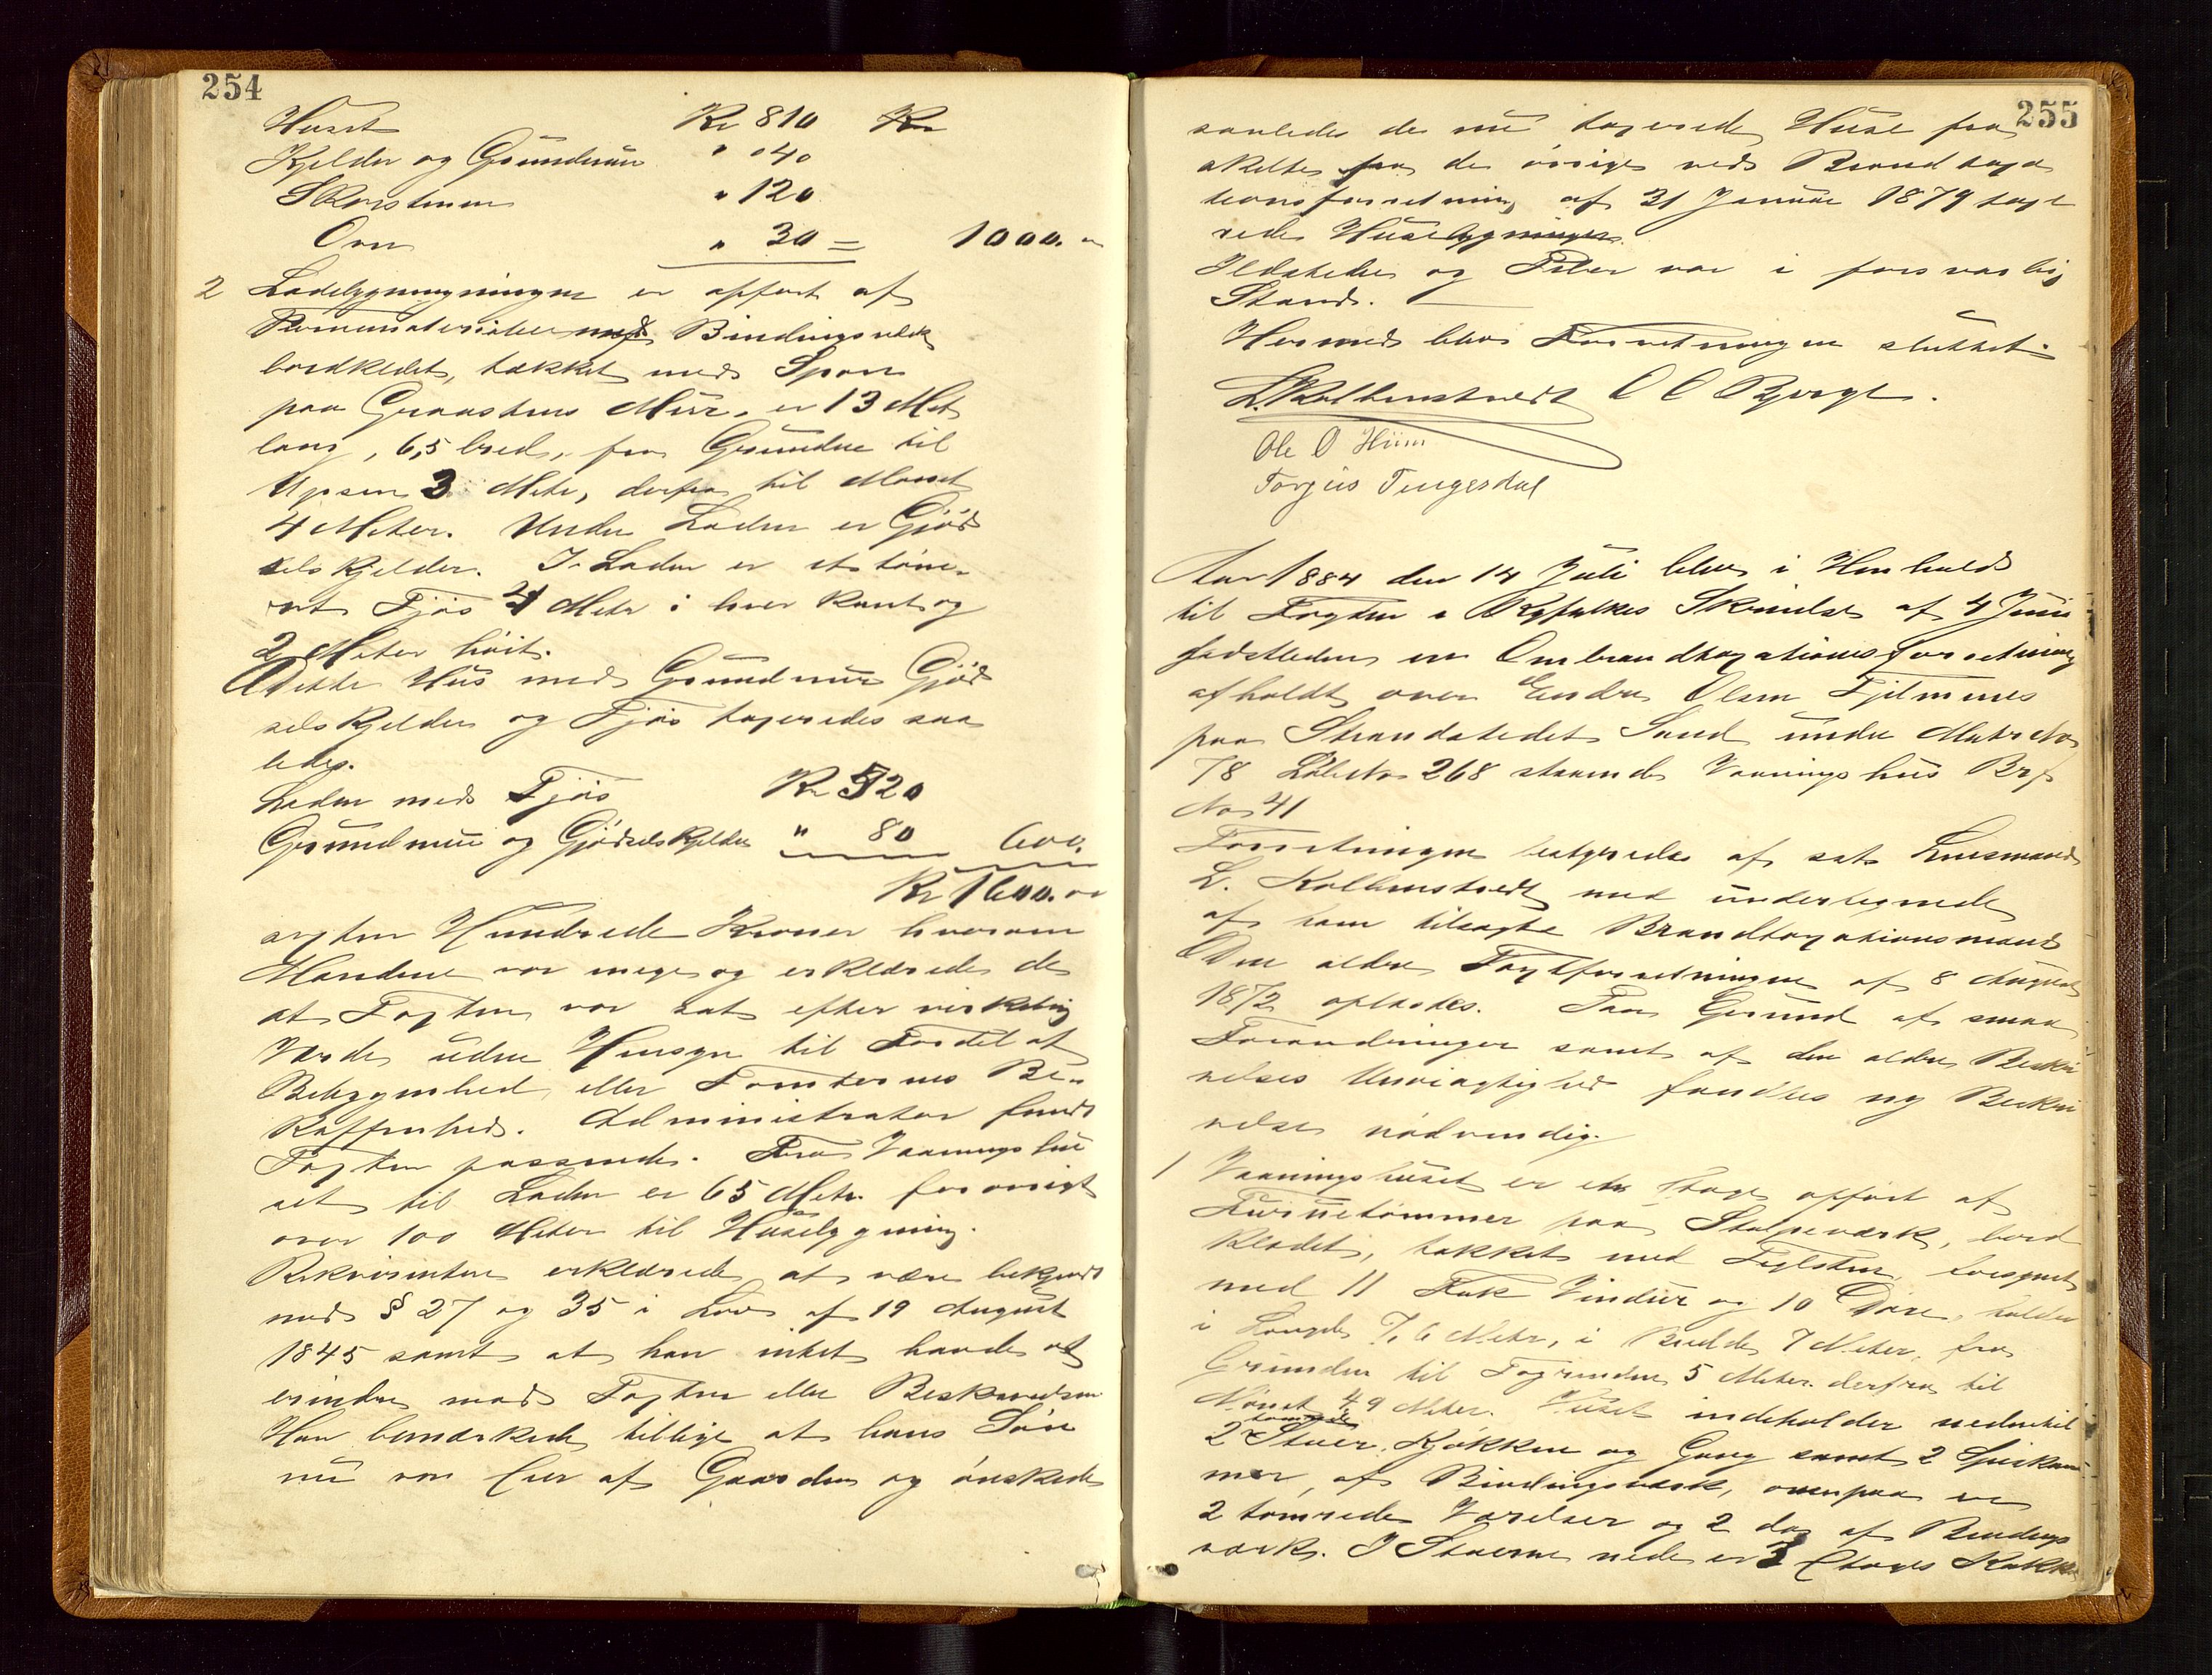 254
Huset Kr 810 Kr
Kjelder og Grundmur " 40
Skorstenen " 120
Ovn " 30 = 1000. "
2 Ladebygnugningen er opført af
Bindingsværk
bordklædt, tækket med Spon
paa Graastens Mur, er 13 Met
lang, 6,5 bred, fra Grunden til
Upsen 3 Mete, derfra til Mønet
4 Meter. Under Laden er Gjød
selskjelder. I Laden er et tøm-
ret Fjøs 4 Mete i hver Kant og
2 Meter høit.
Dette Hus med Grundmur Gjød
selskjelder og Fjøs taxeredes saa
ledes.
Laden med Fjøs Kr 520
Grundmur og Gjødselskjelder " 80 600.
Kr 1600.00
sexten Hundrede Kroner hvorom
Mændene var enige og erklærede de
at Taxten var sat efter virkelig
Værdi uden Hensyn til Fordel af
Beliggenhed, eller Tomternes Be-
skaffenhed. Administrator fandt
Taxten passende. Fra Vaaningshu
set til Laden er 65 Mete. forøvrigt
over 100 Meter til Husebygning.
Rekvirenten erklærede at være bekjendt
med § 27 og 35 i Lov af 19 August
1845 samt at han intet havde at
erindre mod Taxten eller Beskrivelsen
Han bemærkede tillige at hans Søn
nu var Eier af Gaarden og ønskede
255
saaledes de nu taxerede Huse fra
skeltes fra de øvrige ved Brandtaxa
tionsforretning af 31 Januar 1879 taxe
rede Husebygninger.
Ildsteder og Piber var i forsvarlig
Stand.
Hermed blev Forretningen sluttet.
L. Kolbenstvedt O O Bjerge.
Ole O Hiim
Torgius Tengesdal
Aar 1884 den 14 Juli blev i Henhold
til Fogden i Ryfylkes Skrivelse af 4 Juni
sidstleden en Ombrandtaxationsforretning
afholdt over Endre Olsen Fjetmnes
paa Strandstedet Sand under Matr No
78 Løbeno 268 staaende Vaaningshus Brf
No 41
Forretningen bestyredes af sat Lensmand
L. Kolbenstvedt med undertegnede
af ham tilsagte Brandtaxationsmænd
Den ældre Taxtforretningen af 8 August
1872 oplæstes. Paa Grund af smaa
Forandringer samt af den ældre Beskri
velses Unøiagtighed fandtes ny Beskri
velse nødvendig.
1 Vaaningshuset er en Etage opført af
Furuetømmer paa Stolpeværk, bord
klædet, tækket med Teglsten, forsynet
med 11 Fak Vinduer og 10 Døre, holder
i Længde 7,6 Mete, i Bredde 7 Meter, fra
Grunden til Tagrenden 5 Meter derfra til
Mønet 4,9 Meter. Huset indeholder nedentil
2 tømrede Stuer, Kjøkken og Gang samt 2 Spiskam
mer, af Bindingsværk, ovenpaa er
2 tømrede Værelser og 2 do af Bindings
værk. I Stuerne nede er 3 Etages Kakke